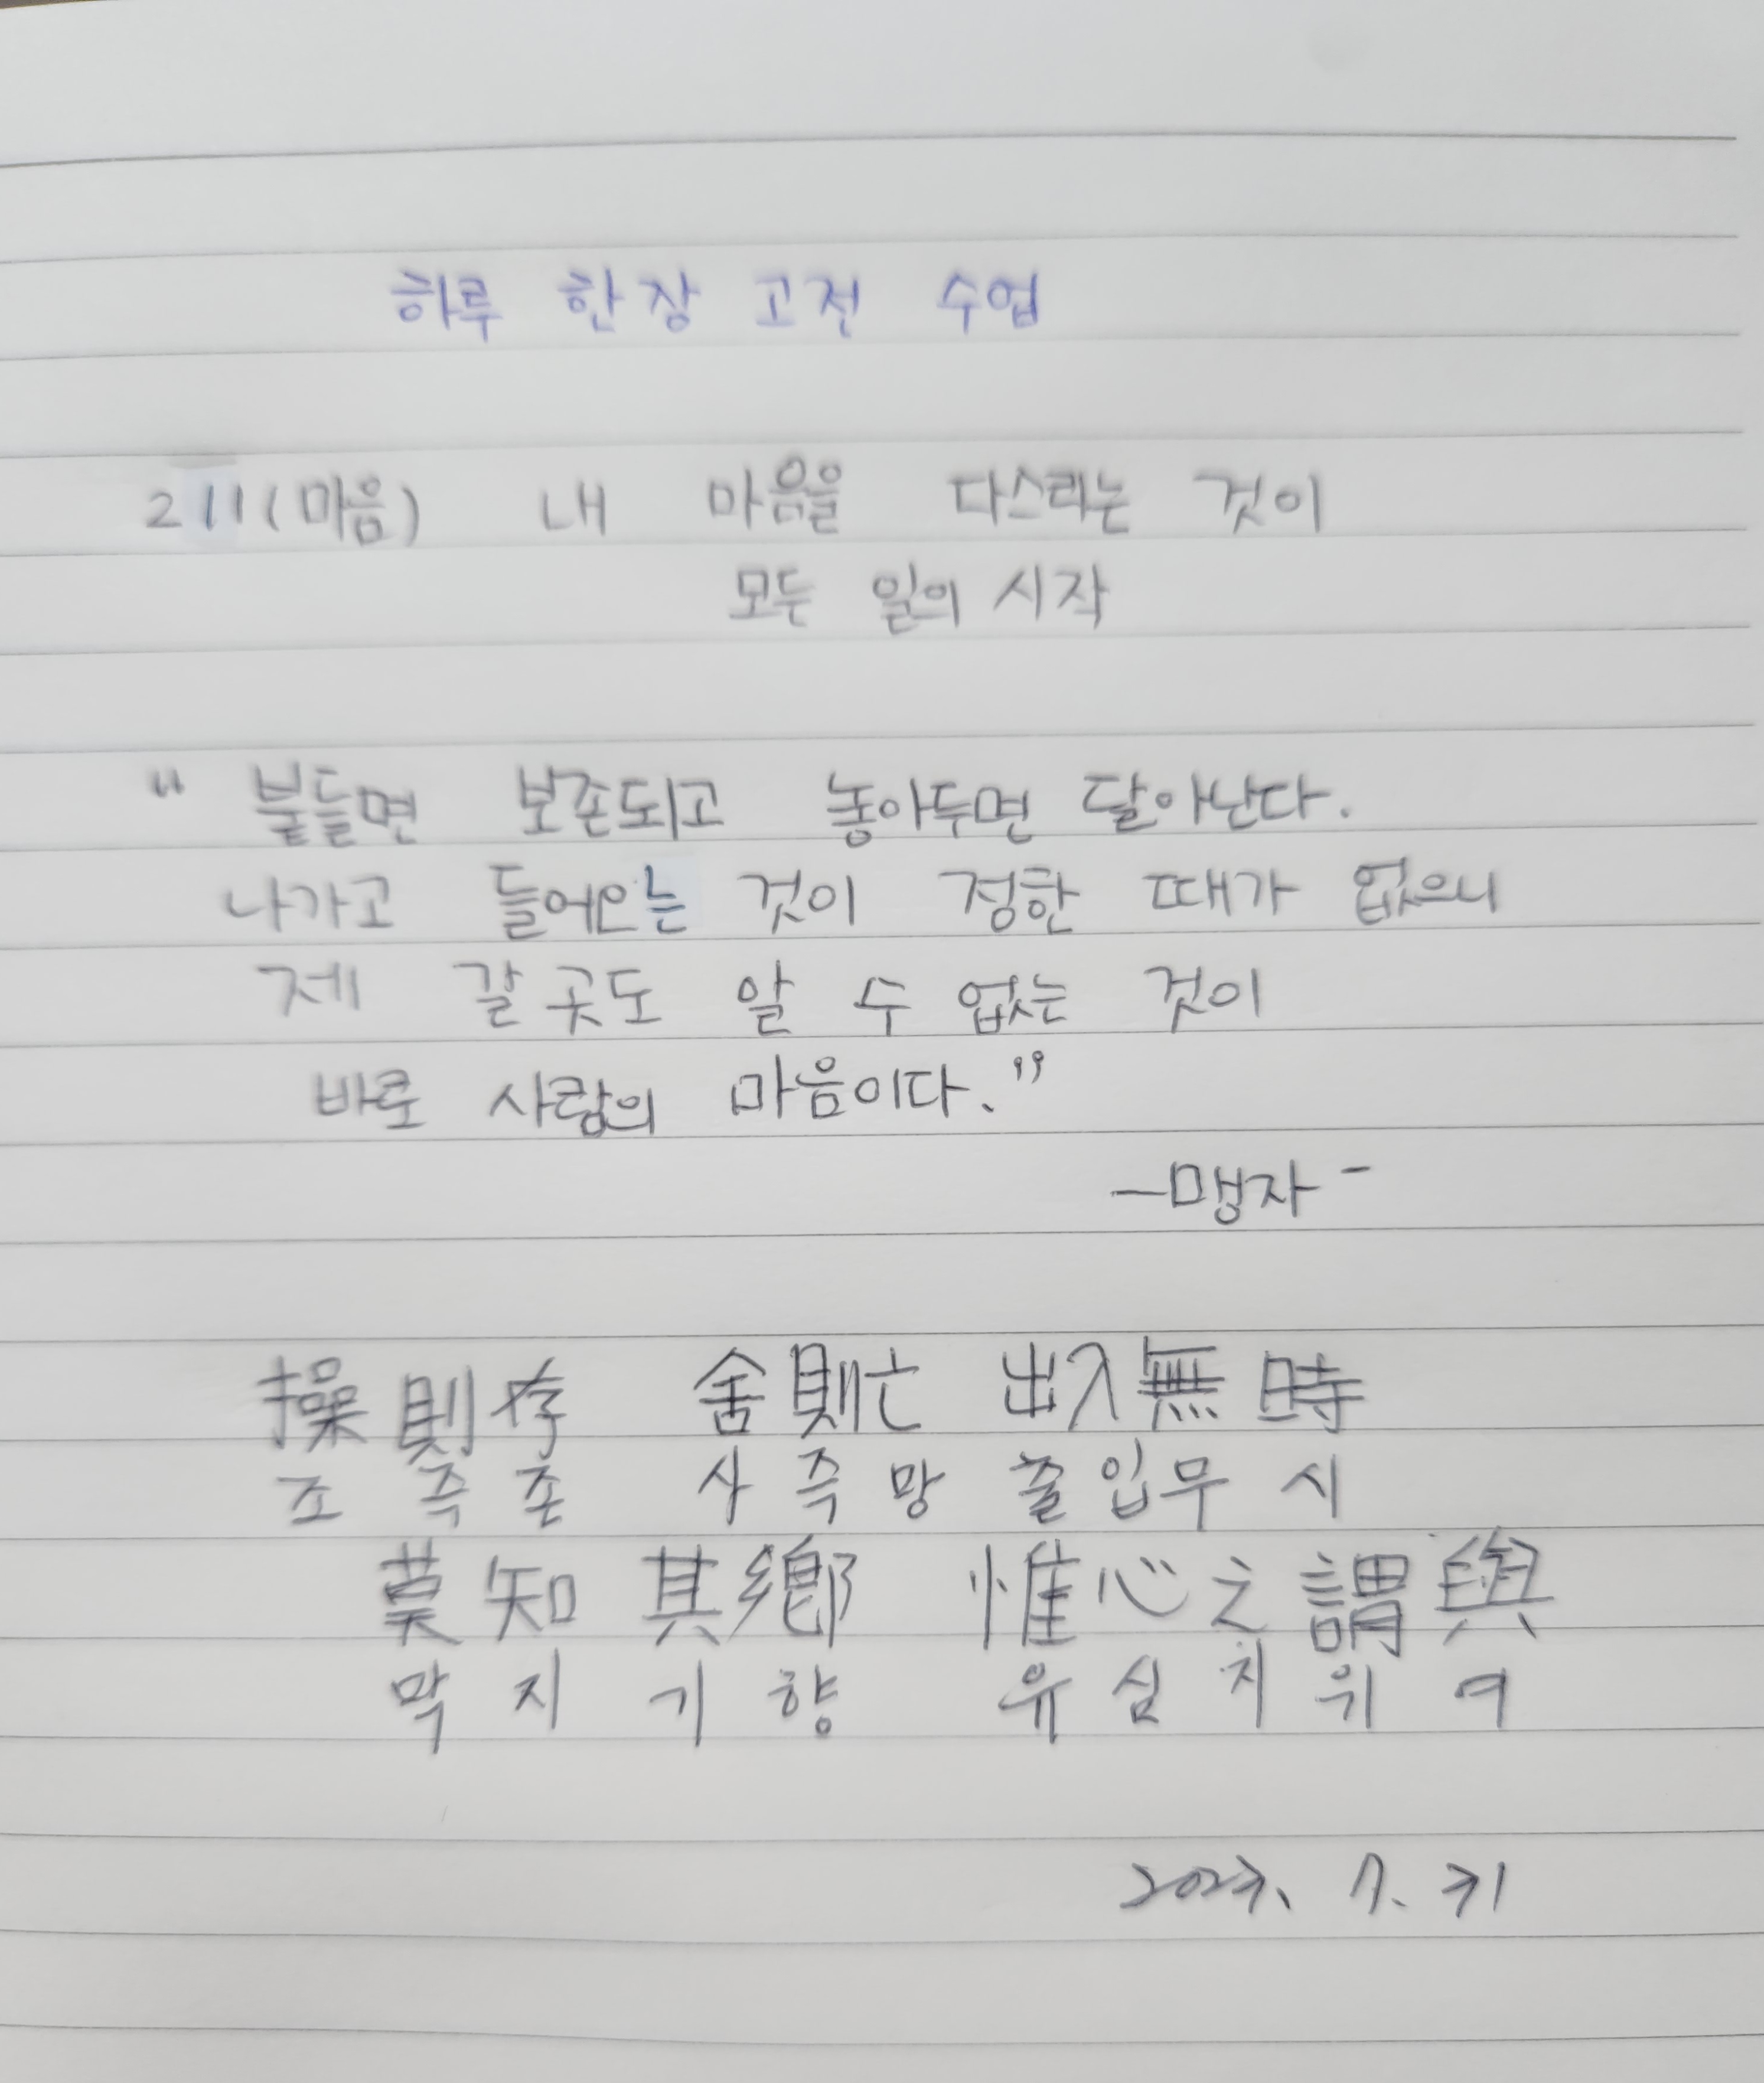 하루 한장 고전 수업
211(마음) 내 마음을 다스리는 것이
모든 일의 시작
"붙들면 보존되고 놓아두면 달아난다.
나가고 들어오는 것이 정한 때가 없으니
제 갈 곳도 알 수 없는 것이
바로 사람의 마음이다."
-맹자-
操則存 舍則亡 出入無時
조즉존 사즉망 출입무시
莫知其鄕 惟心之謂與
막지기향 유심지위여
2023. 7. 31